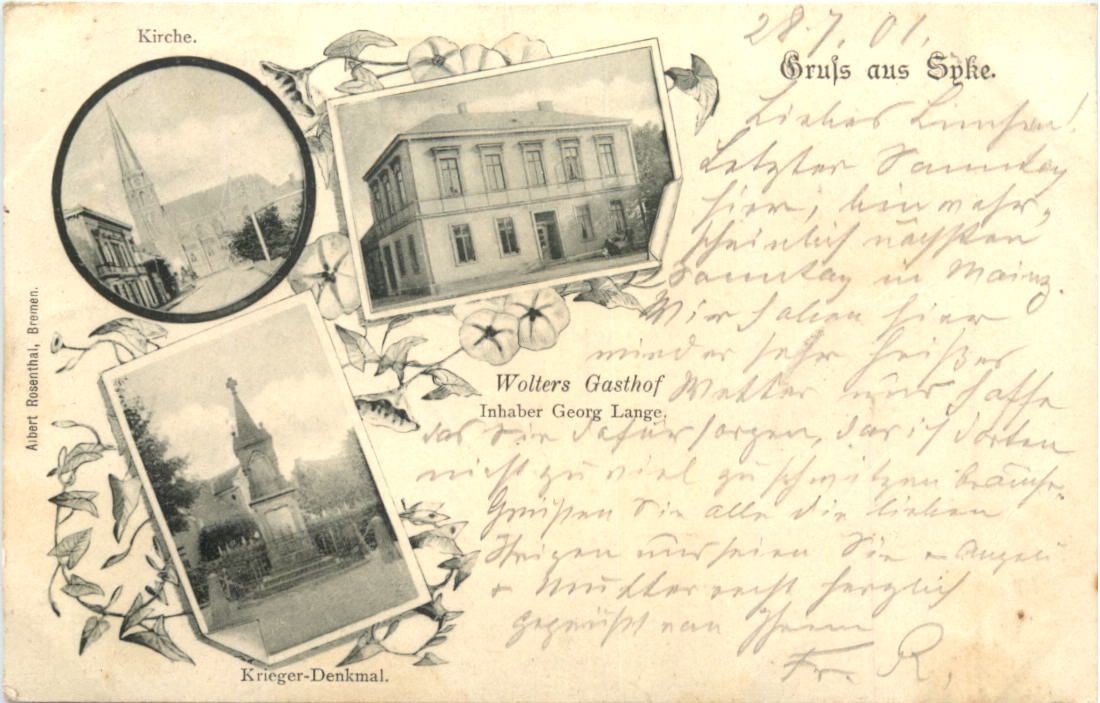 Kirche.
28.7.01.
Gruſs aus Syke.
Liebes
Letzter Sonntag
hier,
scheinlich nächsten
Sonntag in Mainz.
Wir haben hier
wieder sehr heißes
Wolters Gasthof
Inhaber Georg Lange.
Wetter hoffe
das Sie dafür sorgen, das ich dorten
nicht zu viel zu schwitzen brauche.
Grüßen Sie alle die lieben
Ihrigen seien Sie
+ Mutter recht herzlich
gegrüßt von Ihrem
Fr. R.
Albert Rosenthal, Bremen.
Krieger-Denkmal.